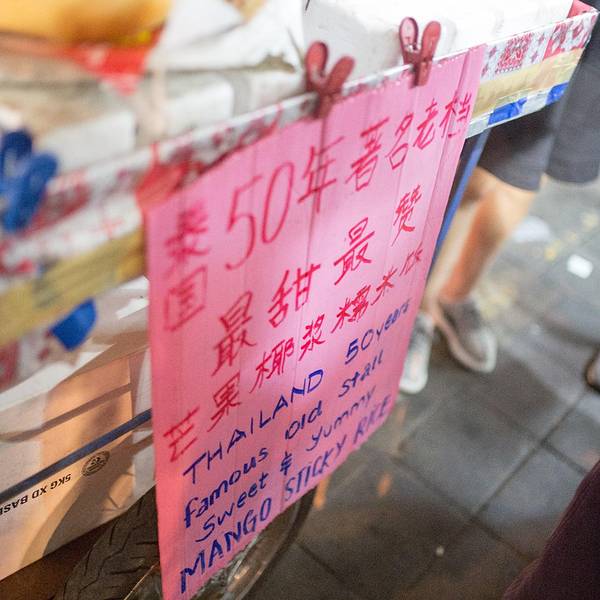 泰国 50年著名老档
最甜最赞
芒果椰浆糯米饭
THAILAND 50years
famous old stall
Sweet & yummy
MANGO STICKY RICE
5KG XD BAS